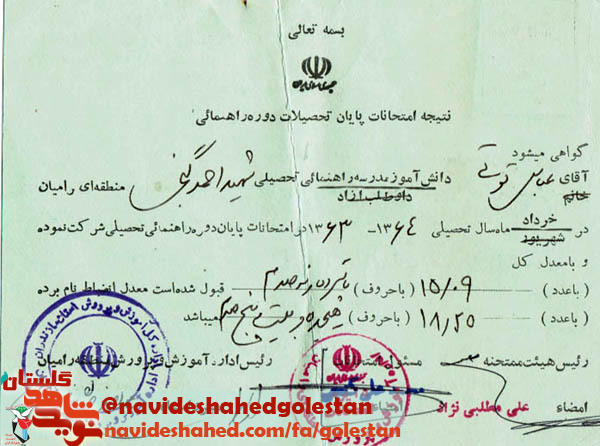 بسمه تعالی
جمهوری اسلامی ایران
نتیجه امتحانات پایان تحصیلات دوره راهنمائی
گواهی میشود
آقای عباس
خانم
دانش آموز مدرسه راهنمائی تحصیلی شهید احمد گنجی منطقه‌ای رامیان
داوطلب آزاد
در خرداد ماه سال تحصیلی ۱۳۶۴ - ۱۳۶۳ در امتحانات پایان دوره راهنمائی تحصیلی شرکت نموده
شهریور
و با معدل کل
(باعدد) ۱۵/۰۹ (باحروف) پانزده و نه صدم قبول شده است معدل انضباط نام برده
(باعدد) ۱۸/۲۵ (باحروف) هیجده و بیست و پنج صدم میباشد
رئیس هیئت ممتحنه مسئول امتحانات رئیس اداره آموزش و پرورش منطقه رامیان
امضاء علی مطلبی نژاد
گلستان
نوید شاهد
@navideshahedgolestan
navideshahed.com/fa/golestan